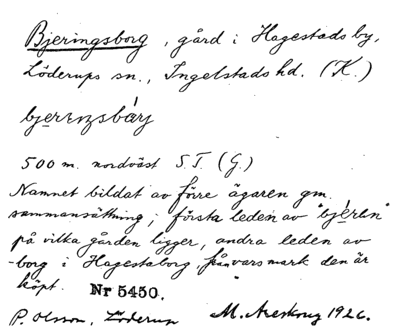 Bjeringsborg, gård i Hagestads by,
Löderups sn., Ingelstads hd. (K.)
500 m. nordväst S.T. (G.)
Namnet bildat av förre ägaren gm.
sammansättning; första leden av "bjéren"
på vilka gården ligger, andra leden av
-borg i Hagestaborg, från vars mark den är
köpt. Nr 5450.
P. Olsson, Löderup M. Areskoug 1926.